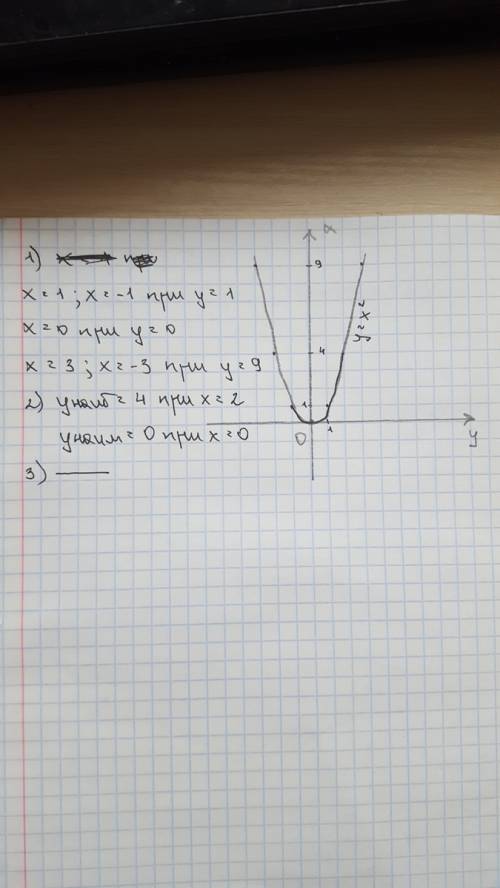 1)
x = 1 ; x = -1 при y = 1
x = 0 при y = 0
x = 3 ; x = -3 при y = 9
2) yнаиб = 4 при x = 2
yнаим = 0 при x = 0
3) —
x
9
4
1
0
1
y
y = x²